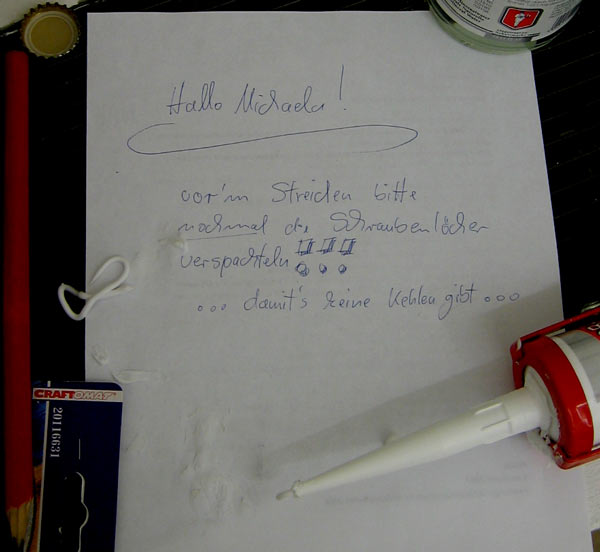 Hallo Michaela!
vor'm Streichen bitte
nochmal die Schraubenlöcher
verspachteln !!!
... damit's keine Kehlen gibt ...
CRAFTOMAT
20116631